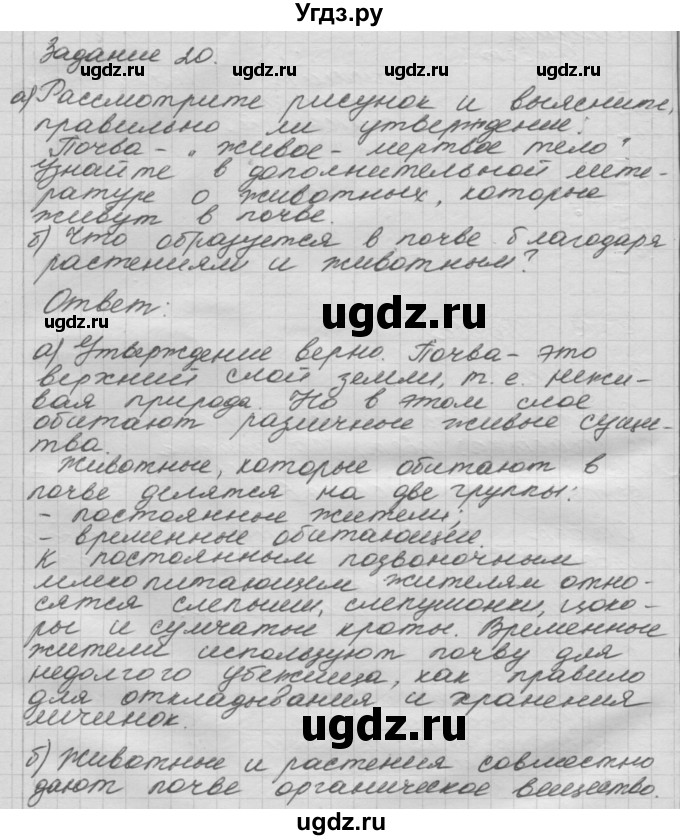 Угдз.ру
Задание 20.
ugdz.ru ugdz.ru ugdz.ru
а) Рассмотрите рисунок и выясните,
правильно ли утверждение:
"Почва - "живое - мертвое тело"
ugdz.ru ugdz.ru ugdz.ru
Узнайте в дополнительной лите-
ратуре о животных, которые
живут в почве.
ugdz.ru ugdz.ru ugdz.ru
б) Что образуется в почве благодаря
растениям и животным?
Ответ:
ugdz.ru ugdz.ru ugdz.ru
а) Утверждение верно. Почва - это
верхний слой земли, т.е. нежи-
вая природа. Но в этом слое
обитают различные живые суще-
ства.
Животные, которые обитают в
почве делятся на две группы:
- постоянные жители;
- временные обитающие.
К постоянным позвоночным
млекопитающим жителям отно-
сятся слепыши, слепушонки, цоко-
ры и сумчатые кроты. Временные
жители используют почву для
недолгого убежища, как правило
для откладывания и хранения
личинок.
ugdz.ru
б) Животные и растения совместно
дают почве органическое вещество.
ugdz.ru